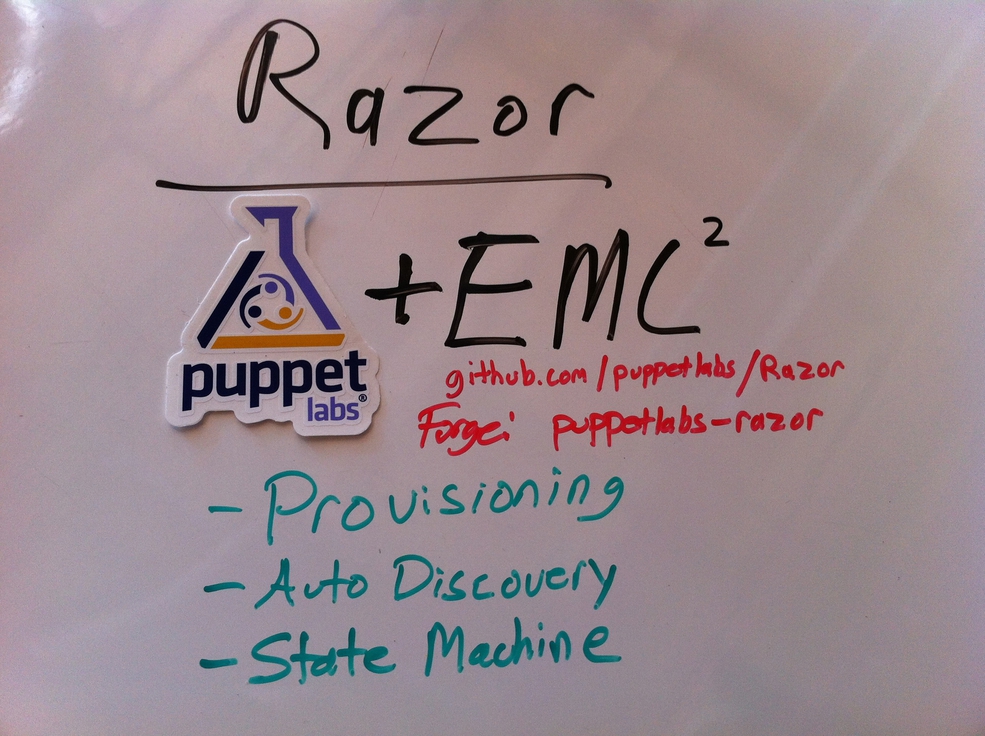 Razor
puppet
labs®
+ EMC²
github.com/puppetlabs/Razor
Forge: puppetlabs-razor
- Provisioning
- Auto Discovery
- State Machine